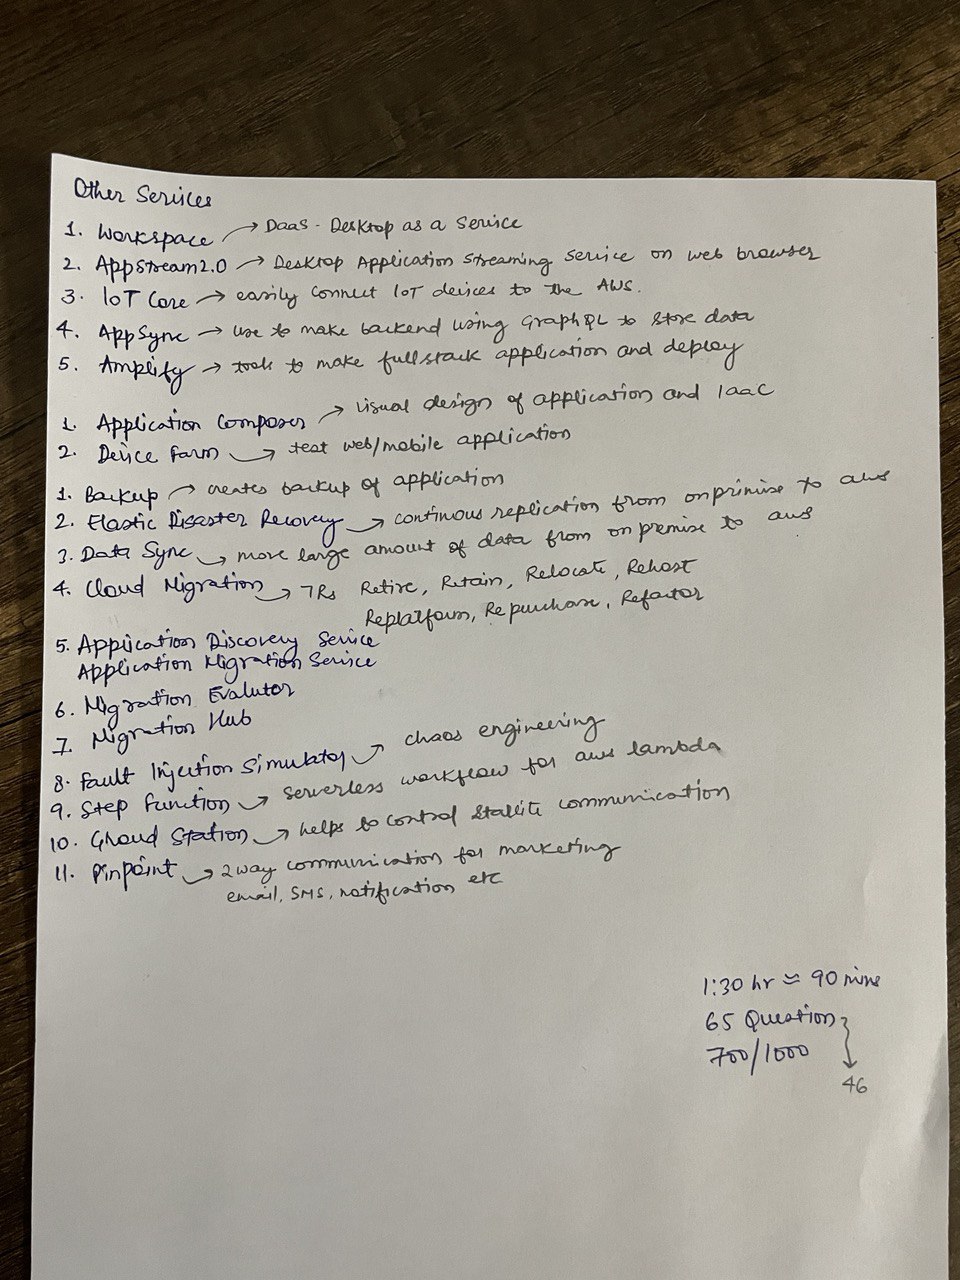 Other Services
1. Workspace → DaaS - Desktop as a Service
2. AppStream2.0 → Desktop Application Streaming Service on web browser
3. IoT Core → easily connect IoT devices to the AWS.
4. AppSync → use to make backend using GraphQL to store data
5. Amplify → tools to make fullstack application and deploy
1. Application Composer → visual design of application and IaaC
2. Device Farm → test web/mobile application
1. Backup → creates backup of application
2. Elastic Disaster Recovery → continous replication from onprimise to aws
3. Data Sync → move large amount of data from on premise to aws
4. Cloud Migration → 7Rs Retire, Retain, Relocate, Rehost
Replatform, Repurchase, Refactor
5. Application Discovery Service
Application Migration Service
6. Migration Evalutor
7. Migration Hub
8. Fault Injection Simulator → chaos engineering
9. Step Function → Serverless workflow for aws lambda
10. Groud Station → helps to control stallite communication
11. Pinpoint → 2way communication for marketing
email, SMS, notification etc
1:30 hr ≈ 90 mins
65 Question
700/1000
46